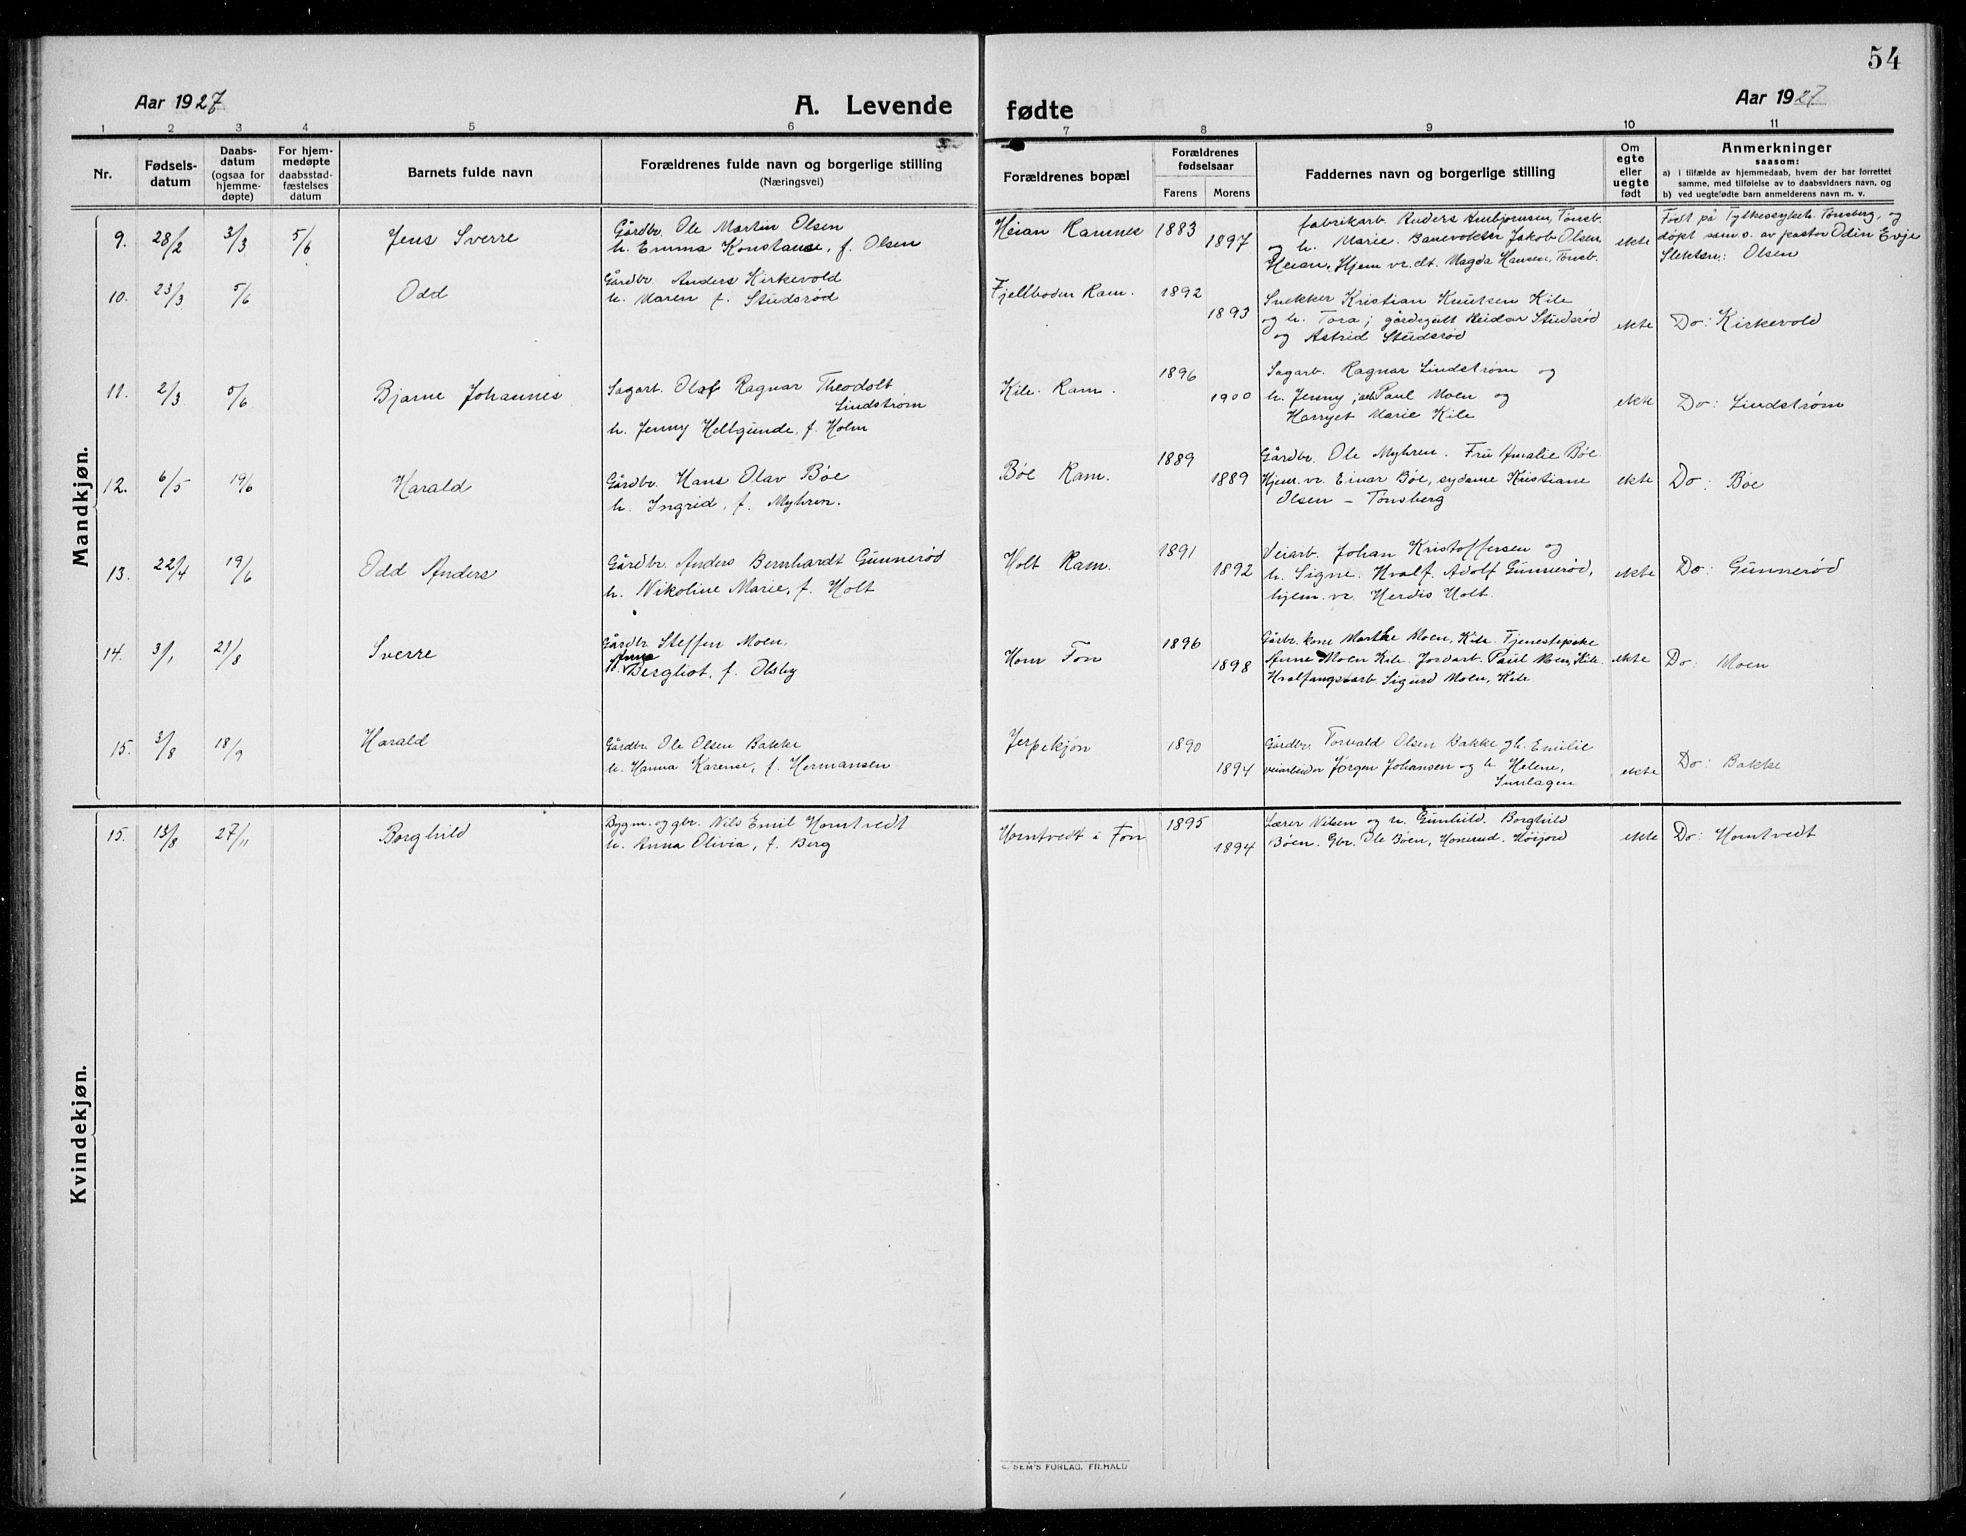 54
Aar 1927
A. Levende fødte
Aar 1927
1 2 3 4 5 6 7 8 9 10 11
Nr.
Fødsels-
datum
Daabs-
datum
(ogsaa for
hjemme-
døpte)
For hjem-
medøpte
daabsstad-
fæstelses
datum
Barnets fulde navn
Forældrenes fulde navn og borgerlige stilling
(Næringsvei)
Forældrenes bopæl
Forældrenes
fødselsaar
Farens Morens
Faddernes navn og borgerlige stilling
Om
egte
eller
uegte
født
Anmerkninger
saasom:
a) i tilfælde av hjemmedaab, hvem der har forrettet
samme, med tilføielse av to daabsvidners navn, og
b) ved uegtefødte barn anmelderens navn m. v.
Mandkjøn.
9. 28/2 3/3 5/6 Jens Sverre
Gårdbr. Ole Martin Olsen
h. Emma Konstanse, f. Olsen
Heian Ramnes 1883 1897
fabrikarb. Anders Arnbjørnsen, Tønsb.
og h. Marie. Banevokter Jakob Olsen,
Heian, Hjem vr. dt. Magda Hansen, Tønsb.
ekte
Født på Fylkessykeh. Tønsberg, og
døpt sam. s. av pastor Odin Evje
Slektsn: Olsen
10. 23/3 5/6 Odd
Gårdbr. Anders Kirkevold
h. Maren f. Studsrød
Fjellboden Ram. 1892 1893
Snekker Kristian Knutsen Kile
og h. Tora; gårdsgutt Reidar Studsrød
og Astrid Studsrød
ekte Do: Kirkevold
11. 2/3 5/6 Bjarne Johannes
Sagarb. Olaf Ragnar Theodolt
Lindstrøm
h. Jenny Hellgunde, f. Holm
Kile Ram. 1896 1900
Sagarb. Ragnar Lindstrøm og
h. Jenny; Paul Moen og
Harryet Marie Kile
ekte Do: Lindstrøm
12. 6/5 19/6 Harald
Gårdbr. Hans Olav Bøe
h. Ingrid, f. Myhren.
Bøe Ram. 1889 1889
Gårdbr. Ole Myhren. Fru Amalie Bøe
Hjem. vr. Einar Bøe, sydame Kristiane
Olsen – Tønsberg
ekte Do: Bøe
13. 22/4 19/6 Odd Anders
Gårdbr. Anders Bernhardt Gunnerød
h. Nikoline Marie, f. Holt
Holt Ram. 1891 1892
Veiarb. Johan Kristoffersen og
h. Signe. Hvalf. Adolf Gunnerød,
hjem. vr. Herdis Holt.
ekte Do: Gunnerød
14. 3/1 21/8 Sverre
Gårdbr. Steffen Moen.
h. Anna Bergliot, f. Olsby
Hom Fon 1896 1898
Gårbr. kone Marthe Moen, Kile. Tjenestepike
Anne Moen Kile. Jordarb. Paul Moen, Kile.
Hvalfangstarb. Sigurd Moen, Kile
ekte Do: Moen
15. 3/8 18/9 Harald
Gårdbr. Ole Olsen Bakke
h. Hanna Karense, f. Hermansen
Jerpekjøn 1890 1894
Gårdbr. Torvald Olsen Bakke og h. Emilie
veiarbeider Jørgen Johansen og h. Helene,
ekte Do: Bakke
Kvindekjøn.
15. 13/8 27/11 Borghild
Bygm. og gbr. Nils Emil Horntvedt
h. Anna Olivia, f. Berg
Horntvedt i Fon 1895 1894
Lærer Nilsen og h. Gunhild. Borghild
Bøen. Gbr. Ole Bøen, Honerud. Høijord
ekte Do: Horntvedt
E. SEM'S FORLAG. FR.HALD